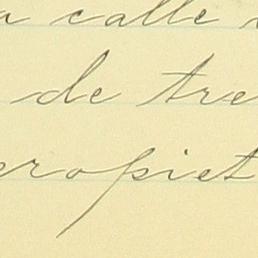 a calle
de tre
ropiet